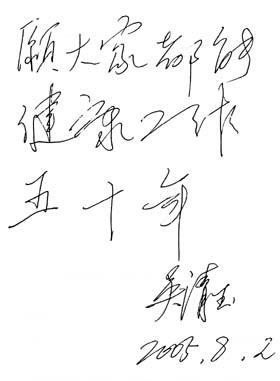 願大家都能
健康工作
五十年
吴清玉
2005.8.2